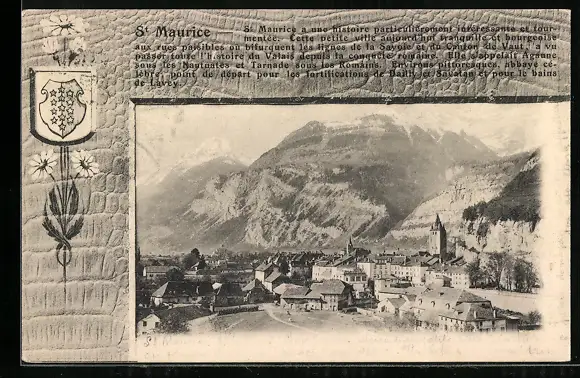 St Maurice
St Maurice a une histoire particulièrement intéressante et tour-
mentée. Cette petite ville aujourd'hui tranquille et bourgeoise
aux rues paisibles ou bifurquent les lignes de la Savoie et du Canton de Vaut, a vu
passer toute l'histoire du Valais depuis la conquête romaine. Elle s'appelait Agaune
sous les Nautuates et Tarnade sous les Romains. Environs pittoresques, abbaye cé-
lèbre, point de départ pour les fortifications de Dailly et Savatan et pour le bains
de Lavey.